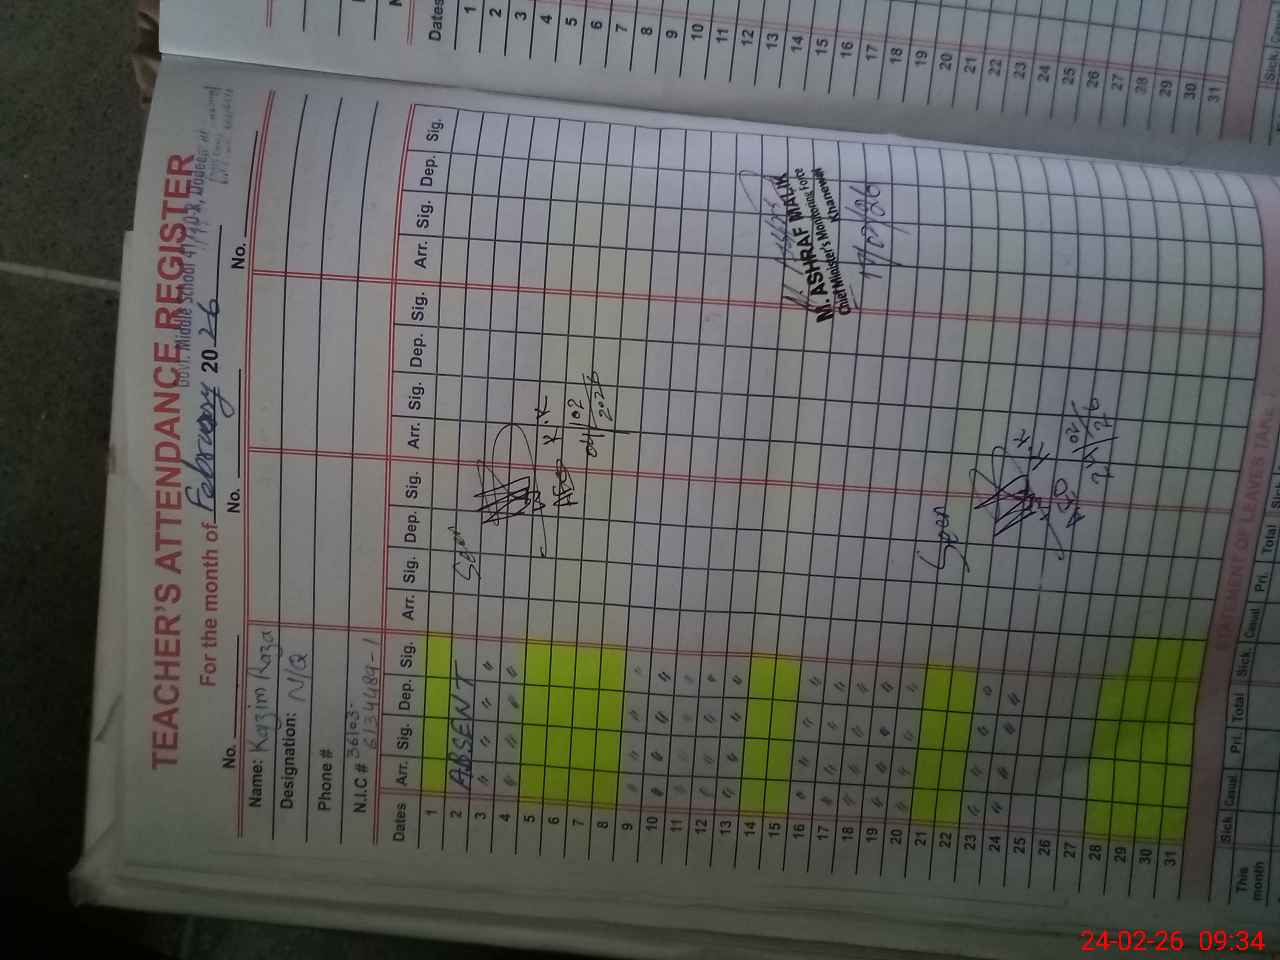 TEACHER'S ATTENDANCE REGISTER
Govt. Middle School
For the month of February 2026
No. No. No.
Name: Kazim Raza
Designation: N/Q
Phone #
N.I.C # 36103-
6134489-1
Dates Arr. Sig. Dep. Sig. Arr. Sig. Dep. Sig. Arr. Sig. Dep. Sig. Arr. Sig. Dep. Sig.
1
2 ABSENT
3 〃 〃 〃 〃
4 〃 〃 〃 〃
5
6
7
8
9 〃 〃 〃 〃
10 〃 〃 〃 〃
11 〃 〃 〃 〃
12 〃 〃 〃 〃
13 〃 〃 〃 〃
14
15
16 〃 〃 〃 〃
17 〃 〃 〃 〃
18 〃 〃 〃 〃
19 〃 〃 〃 〃
20 〃 〃 〃 〃
21
22
23 〃 〃 〃 〃
24 〃 〃 〃
25
26
27
28
29
30
31
Seen
AEO
04/02
2026
M. ASHRAF MALIK
Chief Minister's Monitoring Force
Khanewal
17/02/26
Seen
AEO
21/02/
26
STATEMENT OF LEAVES TAKE
This month Sick Casual Pri. Total Sick Casual Pri. Total Sick
Dates
1
2
3
4
5
6
7
8
9
10
11
12
13
14
15
16
17
18
19
20
21
22
23
24
25
26
27
28
29
30
31
Sick
24-02-26 09:34